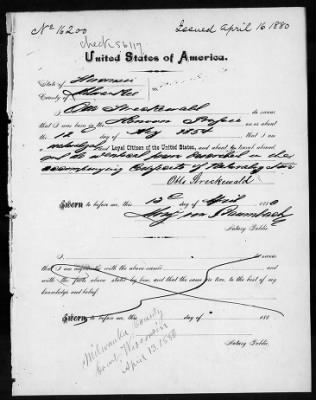 No 16200
Issued April 16 1880
United States of America.
State of
County of Milwaukee
Otto Dreckewald do swear
that I was born in the on or about
the 12 day of May 1854 that I am
a naturalized and Loyal Citizen of the United States, and about to travel abroad
and the identical person described in the
accompanying Certificate of Naturalization
Otto Dreckewald
Sworn to before me, this 12 day of April 1880
Notary Public.
I am acquainted with the above named and
with the facts above stated by him, and that the same are true, to the best of my
knowledge and belief.
Sworn to before me, this day of 188
Notary Public.
Milwaukee County
Wisconsin
April 13. 1880